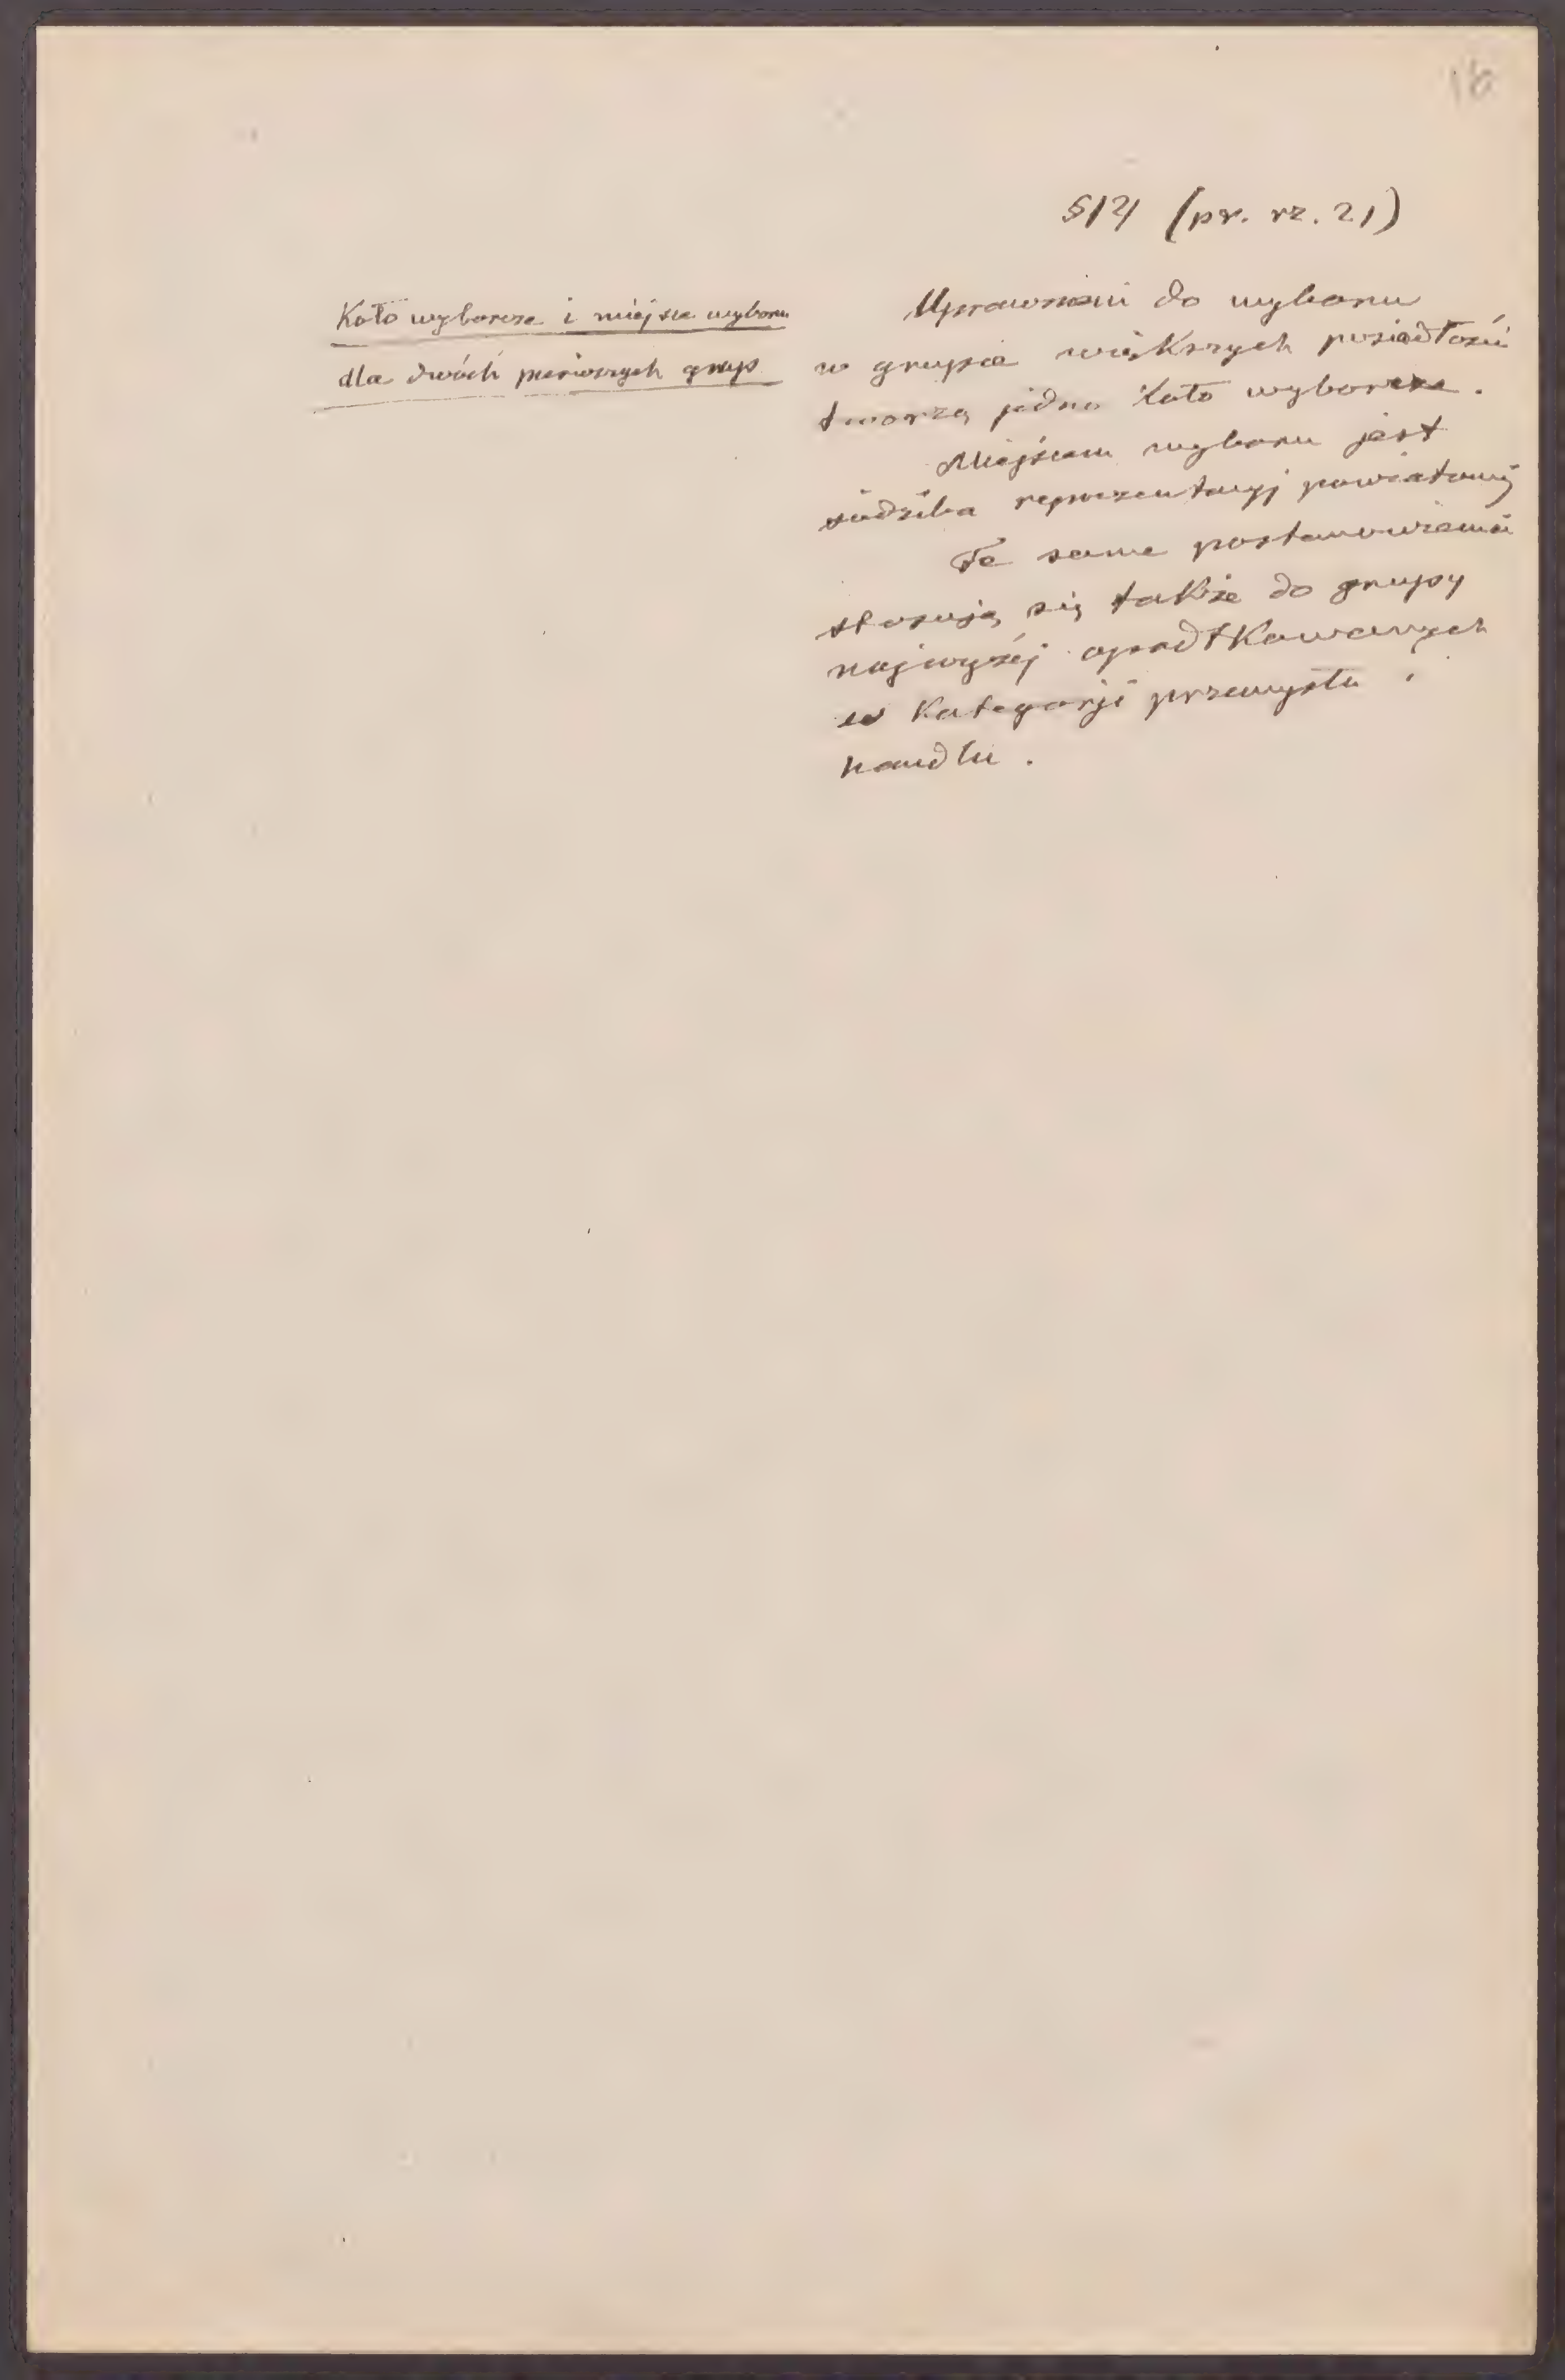 16
§ 21 (pr. rz. 21)
Koło wyborcze i miejsce wyboru
dla dwóch pierwszych grup
Uprawnieni do wyboru
w grupie większych posiadłości
tworzą jedno koło wyborcze.
Miejscem wyboru jest
siedziba reprezentacyj powiatowéj
Te same postanowienia
stosują się także do grupy
najwyżéj opodtkowanych
w kategorji przemysłu i
handlu.